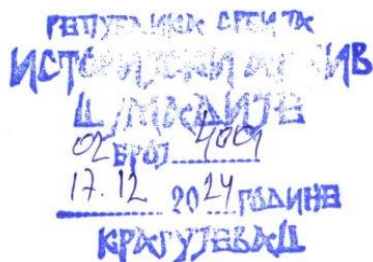 РЕПУБЛИКА СРБИЈА
ИСТОРИЈСКИ АРХИВ
ШУМАДИЈЕ
02 БРОЈ
17.12 2024 ГОДИНЕ
КРАГУЈЕВАЦ